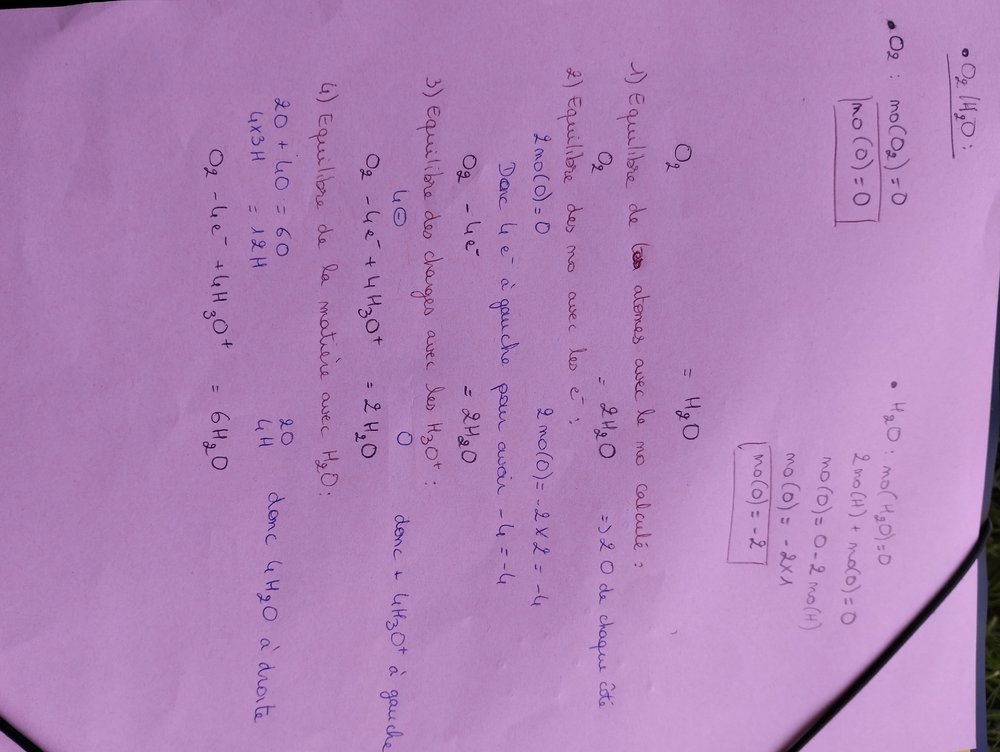 • O₂/H₂O :
• O₂ : no(O₂) = 0
no(O) = 0
• H₂O : no(H₂O) = 0
2no(H) + no(O) = 0
no(O) = 0 - 2 no(H)
no(O) = - 2 x 1
no(O) = - 2
O₂ = H₂O
1) Equilibre de atomes avec le no calculé :
O₂ = 2H₂O => 2 O de chaque côté
2) Equilibre des no avec les e⁻ :
2no(O) = 0 2no(O) = -2 x 2 = -4
Donc 4 e⁻ à gauche pour avoir -4 = -4
O₂ - 4e⁻ = 2H₂O
3) Equilibre des charges avec les H₃O⁺ :
4⊖ 0 donc + 4H₃O⁺ à gauche
O₂ - 4e⁻ + 4H₃O⁺ = 2H₂O
4) Equilibre de la matière avec H₂O :
2O + 4O = 6O 2O
4x3H = 12H 4H donc 4H₂O à droite
O₂ - 4e⁻ + 4H₃O⁺ = 6H₂O